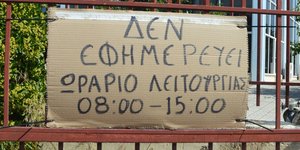 ΔΕΝ
ΕΦΗΜΕΡΕΥΕΙ
ΩΡΑΡΙΟ ΛΕΙΤΟΥΡΓΙΑΣ
08:00-15:00